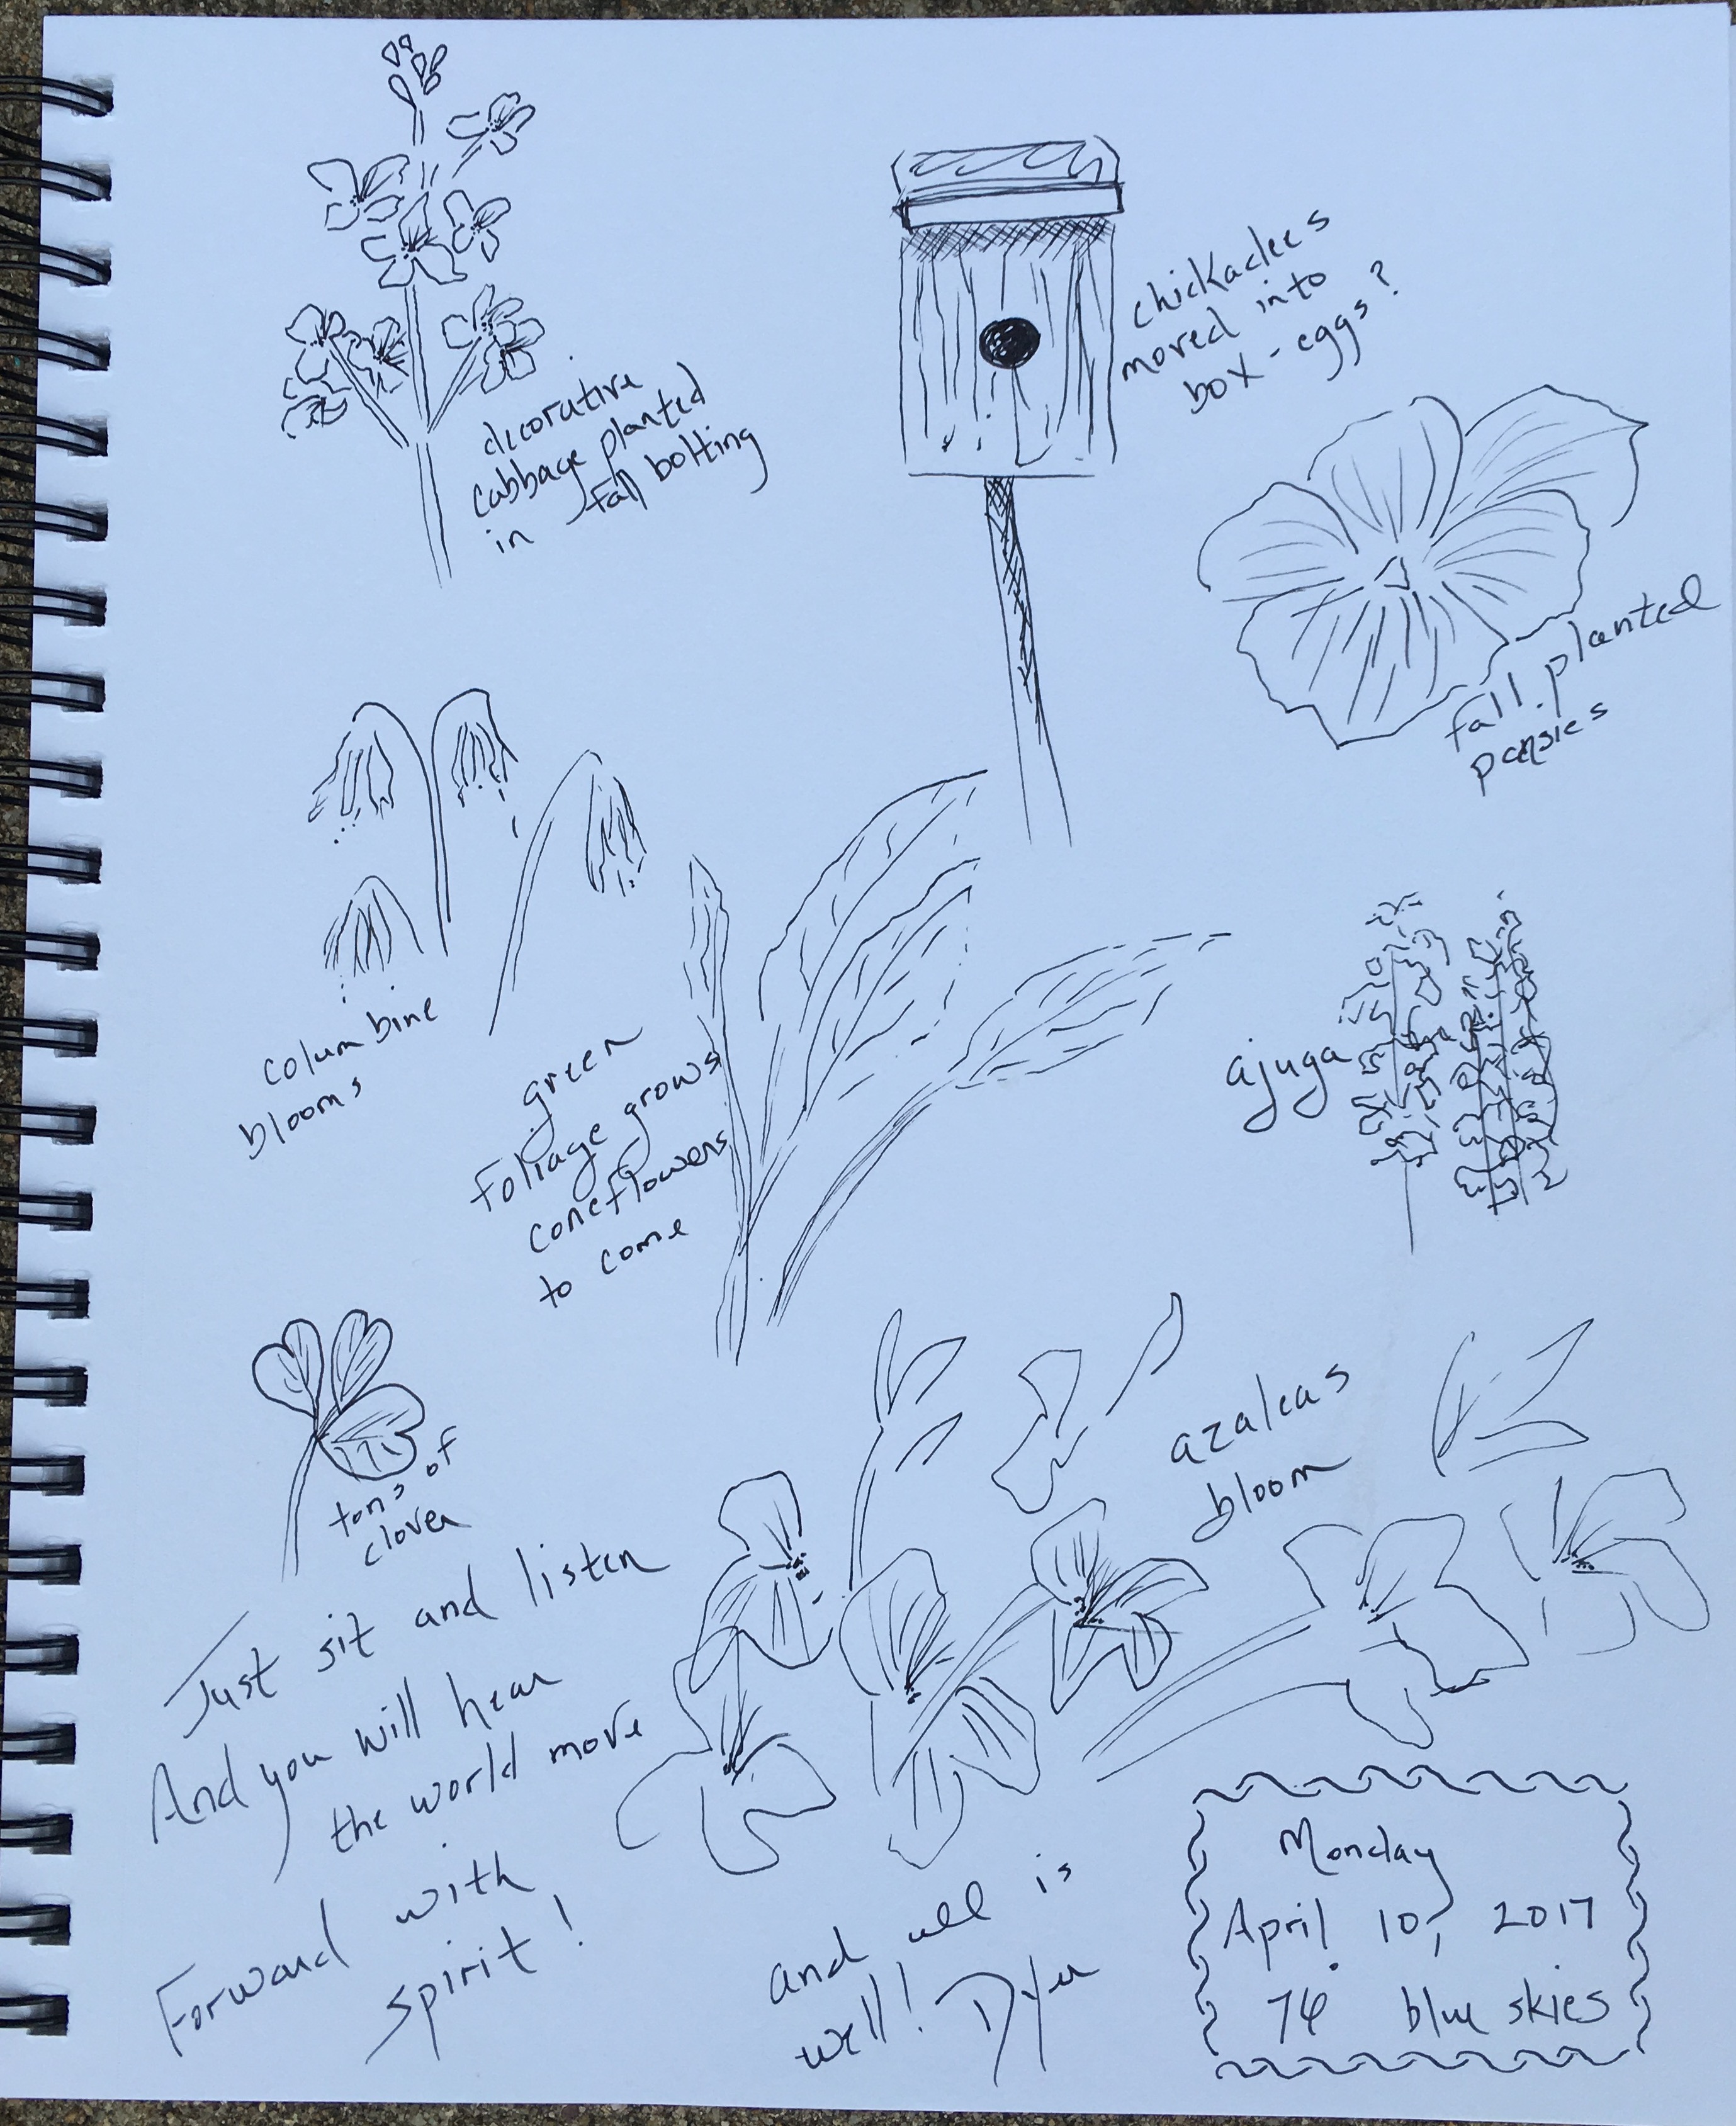 decorative
cabbage planted
in fall bolting
chickadees
moved into
box - eggs?
fall planted
pansies
columbine
blooms
green
foliage grows
coneflowers
to come
ajuga
tons of
clover
azaleas
bloom
Just sit and listen
And you will hear
the world move
Forward with
spirit!
and all is
well! Dyer
Monday
April 10, 2017
76° blue skies